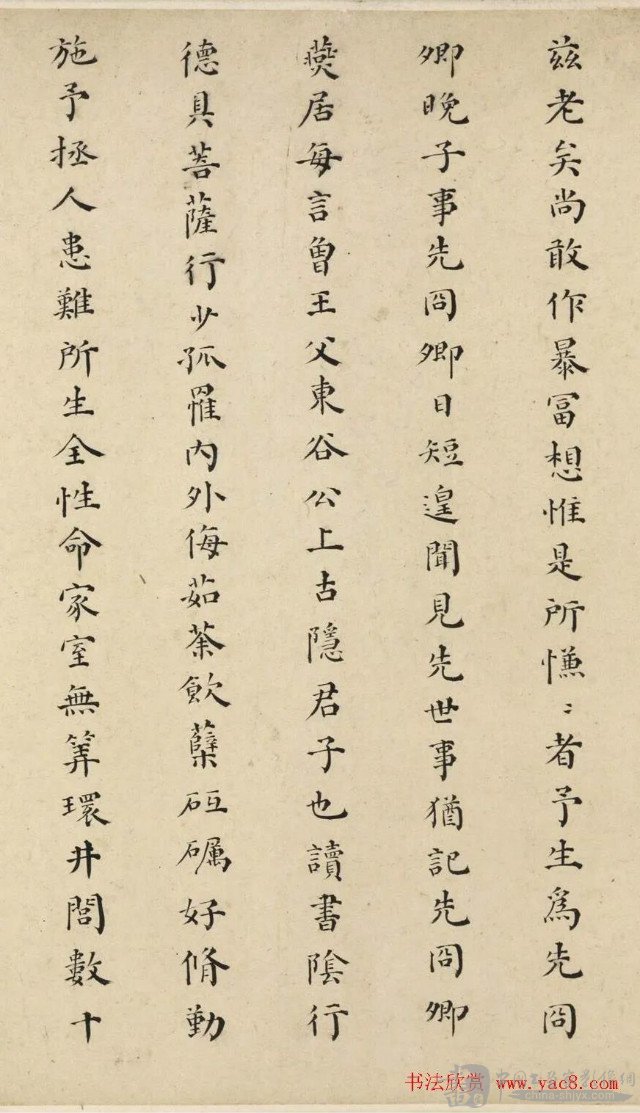 茲老矣尚敢作暴冨想惟是所慊〻者予生爲先冏
卿晚子事先冏卿日短遑聞見先世事猶記先冏卿
燕居每言曾王父東谷公上古隱君子也讀書陰行
德具菩薩行少孤罹内外侮茹荼飲蘖砥礪好脩勤
施予拯人患難所生全性命家室無筭環井閭數十
书法欣赏 www.yac8.com
china-shlyx.com